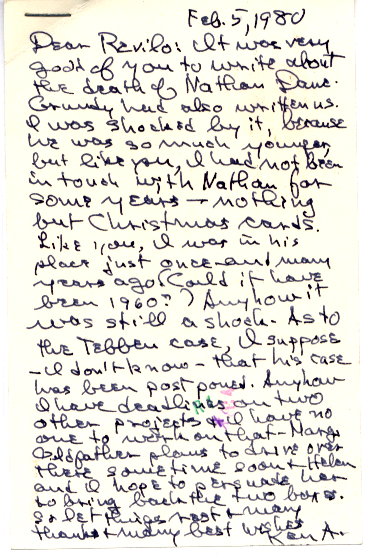 Feb. 5, 1980
Dear Revilo: It was very
good of you to write about
the death of Nathan Dane.
Grundy had also written us.
I was shocked by it, because
he was so much younger,
but like you, I had not been
in touch with Nathan for
some years — nothing
but Christmas cards.
Like you, I was in his
place just once and many
years ago. (Could it have
been 1960?) Anyhow it
was still a shock. As to
the Tebben case, I suppose
— I don't know — that his case
has been postponed. Anyhow
I have deadlines on two
other projects & I have no
one to work on that — Margo
Oldfather plans to drive over
there sometime soon & Helen
and I hope to persuade her
to bring back the two boxes.
So let things rest & many
thanks & many best wishes
Ken A.